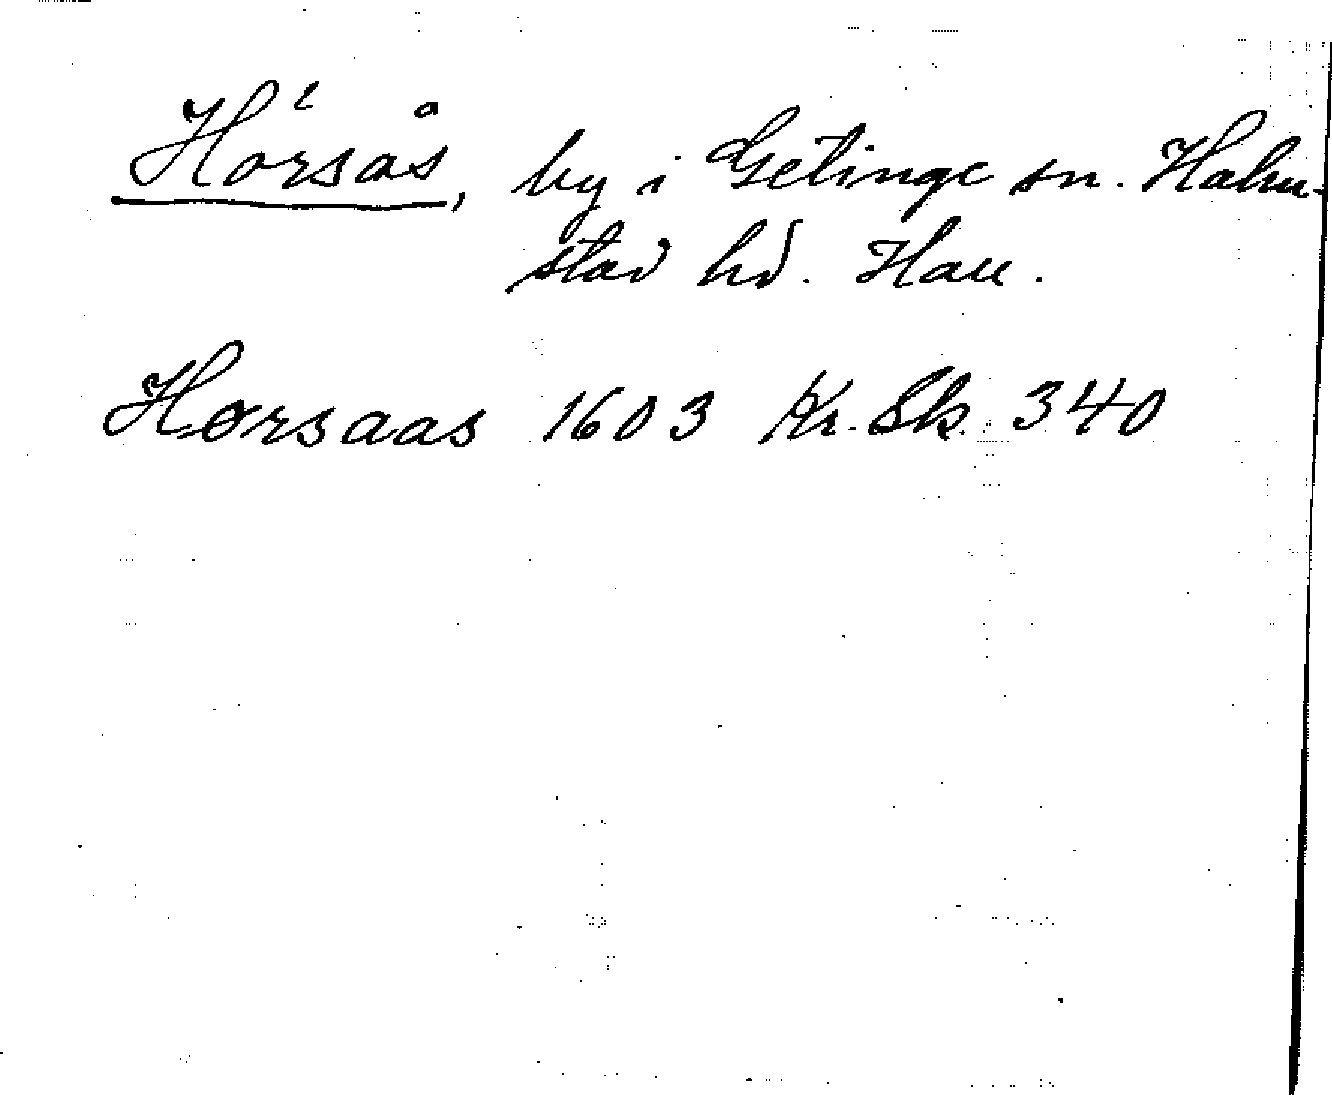 Hörsås, by i Getinge sn. Halm-
stad hd. Hall.
Hørsaas 1603 Kr. Sk. 340